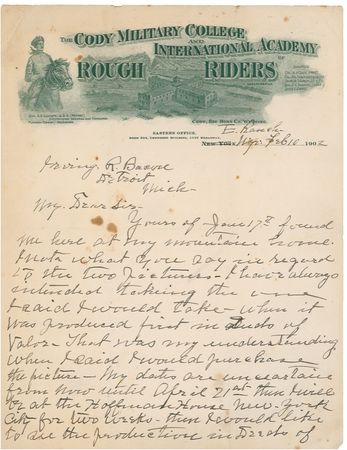 THE CODY MILITARY COLLEGE
AND
INTERNATIONAL ACADEMY
OF
ROUGH RIDERS
CODY, BIG HORN CO., WYOMING.
EASTERN OFFICE,
NEW YORK,
Feb 10 1902
Irving R. Bacon
Detroit
Mich
My Dear Sir
Yours of Jan 17th found
me here at my mountain home.
I note what you say in regard
to the two pictures. I have always
intended taking the one
I said I would take when it
was produced first in Deeds of
Valor. That was my understanding
when I said I would purchase
the picture - My dates are uncertain
from now until April 21st then I will
be at the Hoffman House New-York
City for two weeks - then I would like
to see the production in Deeds of